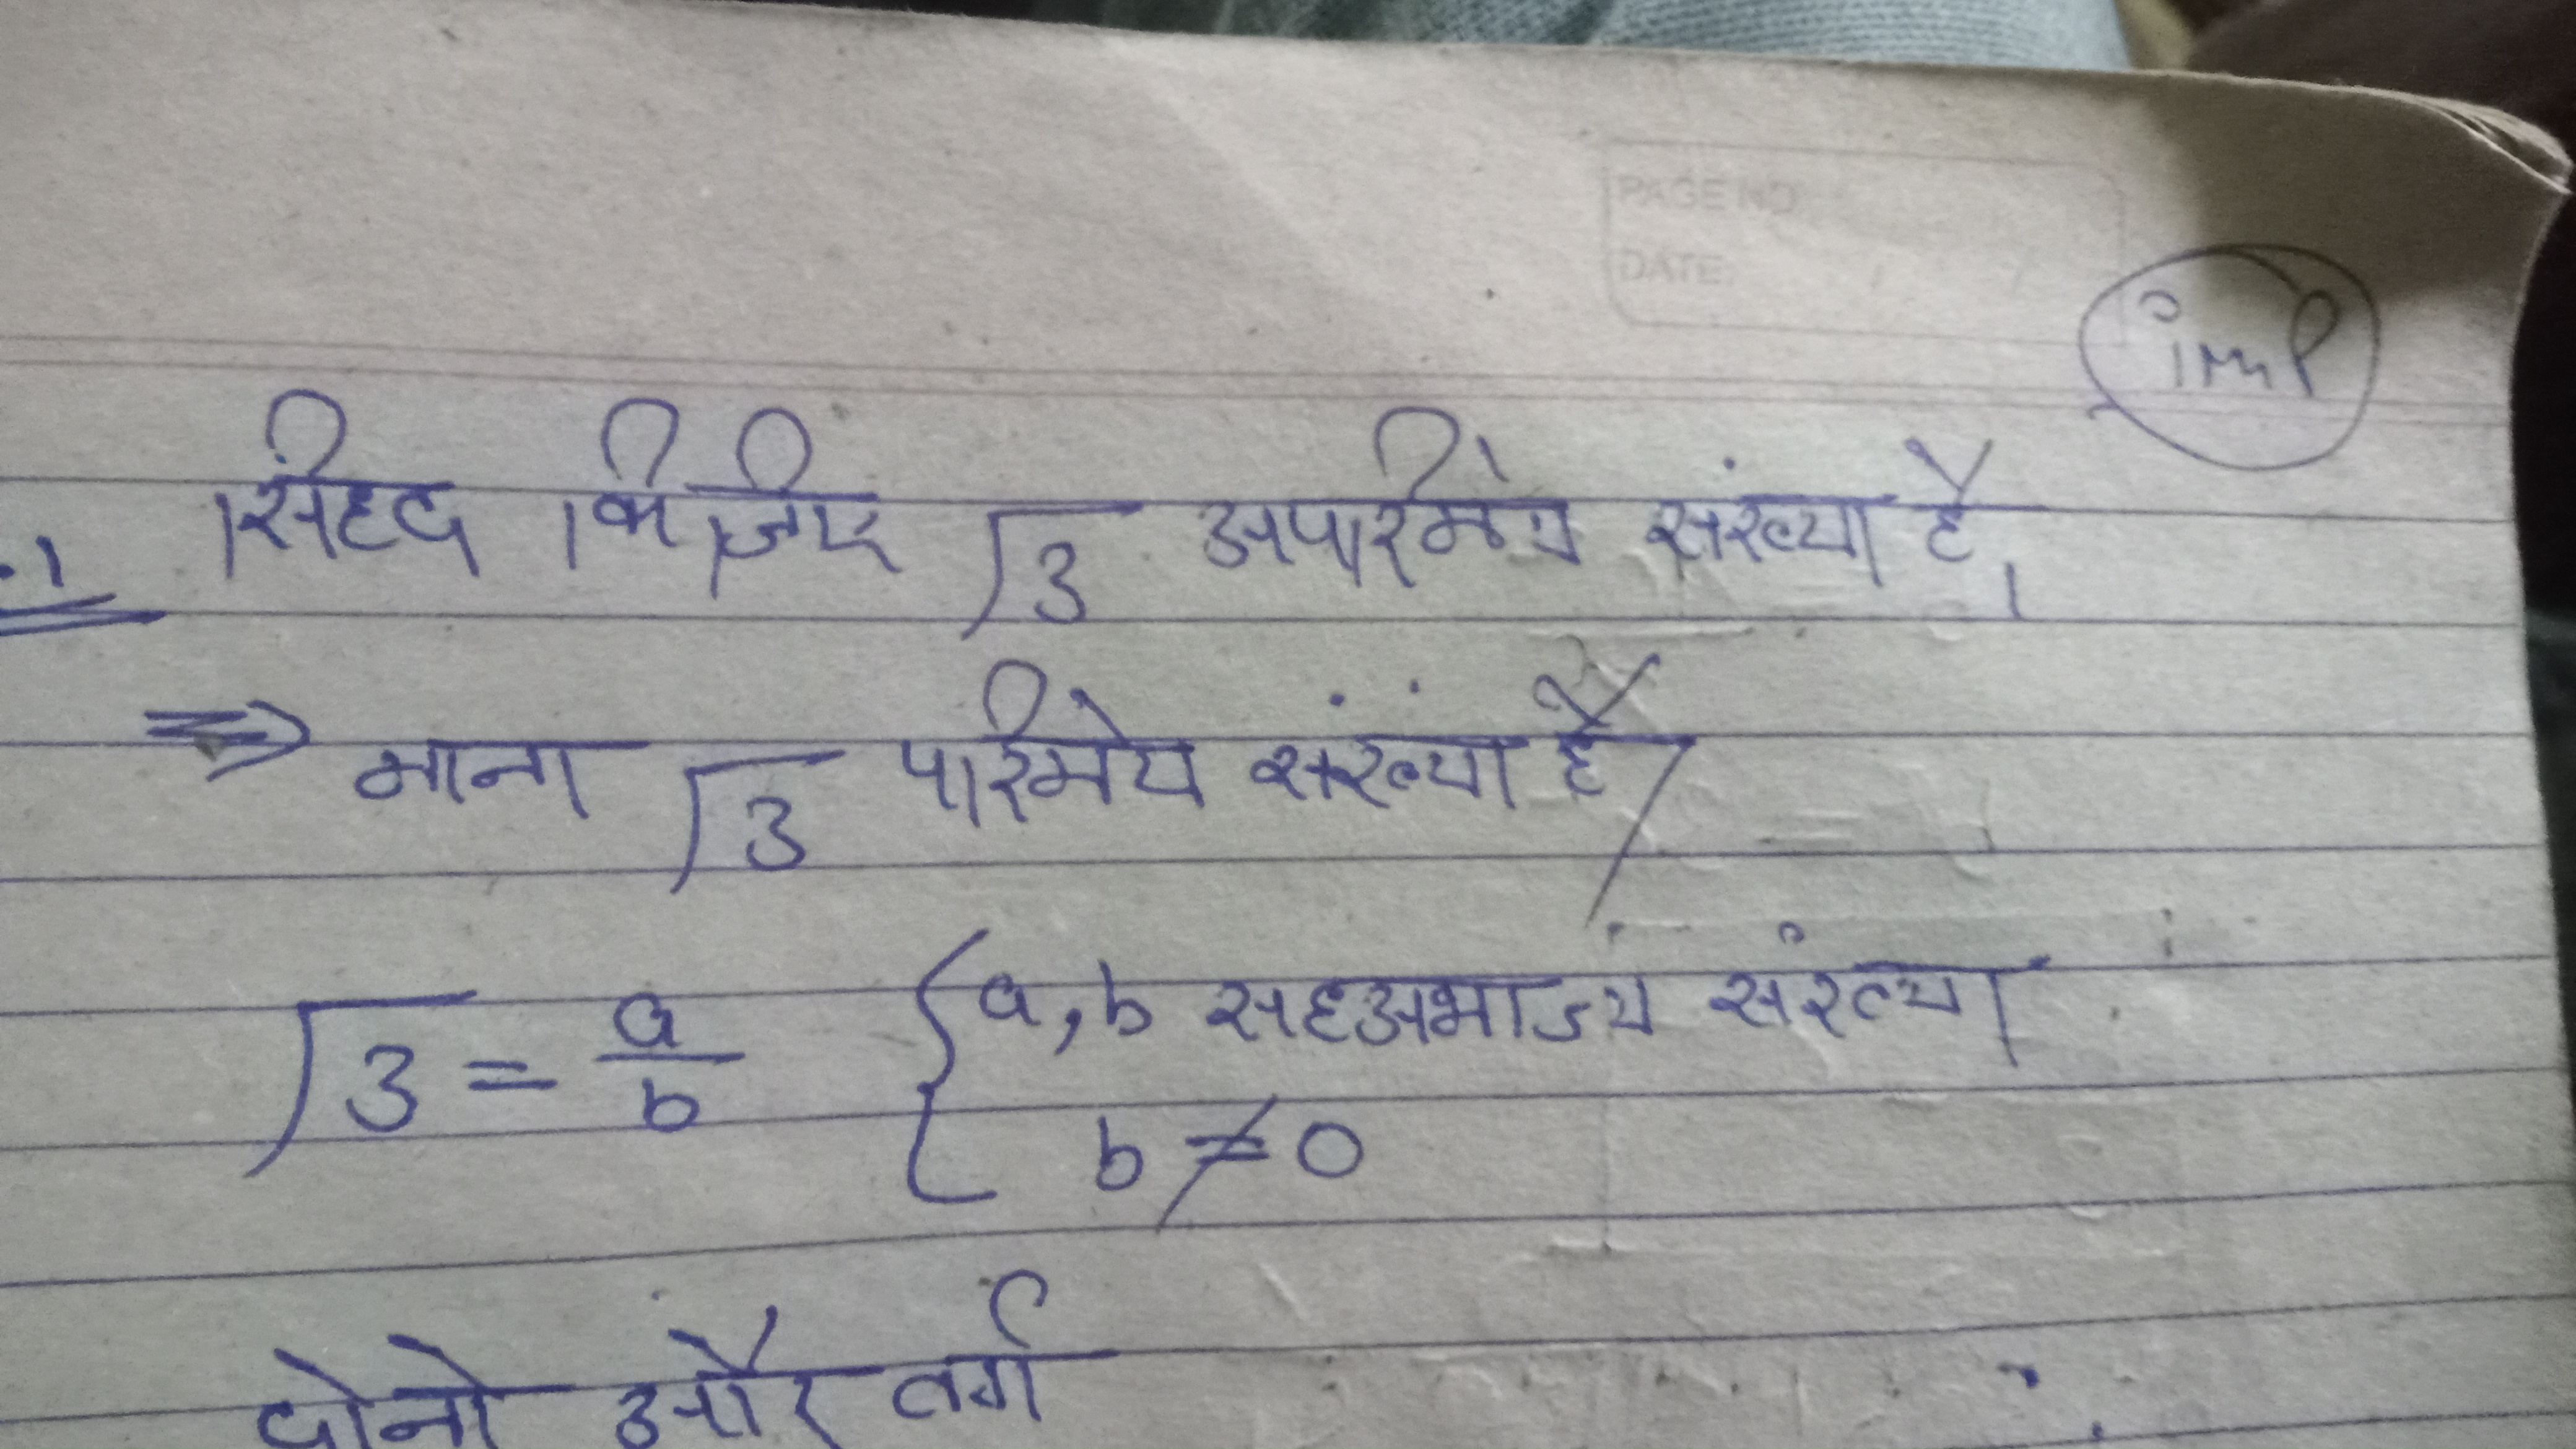 PAGE NO.
DATE:
imp
.1 सिद्द किजिए √3 अपरिमेय संख्या है,
⇒ माना √3 परिमेय संख्या है/
√3 = a/b { a, b सहअभाज्य संख्या
b ≠ 0
दोनो और वर्ग